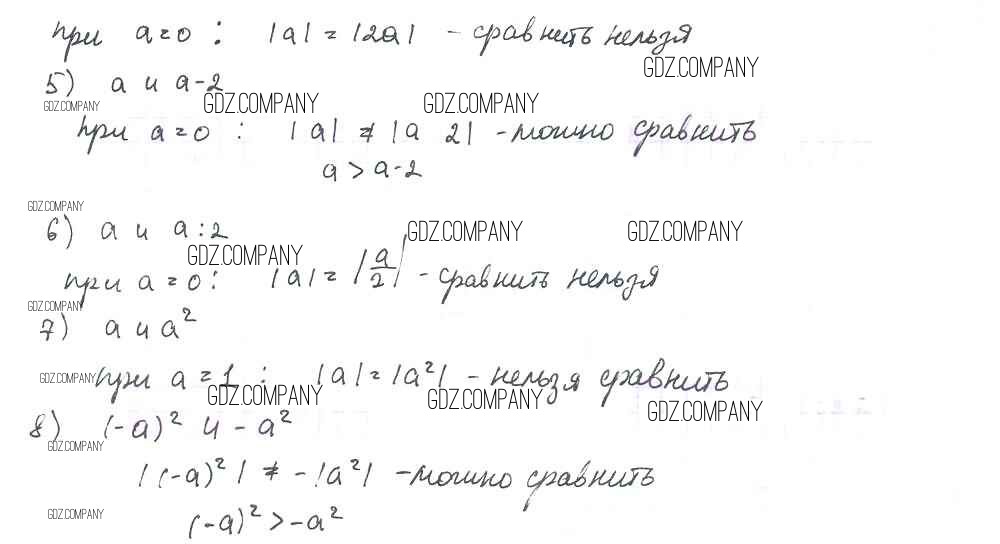 при a=0 : |a| = |2a| - сравнить нельзя
GDZ.COMPANY
5) a и a-2
GDZ.COMPANY GDZ.COMPANY GDZ.COMPANY
при a=0 : |a| ≠ |a 2| - можно сравнить
a > a-2
GDZ.COMPANY
6) a и a:2
GDZ.COMPANY GDZ.COMPANY GDZ.COMPANY
при a=0: |a| = |a/2| - сравнить нельзя
GDZ.COMPANY
7) a и a²
GDZ.COMPANY при a=1 : |a| = |a²| - нельзя сравнить
GDZ.COMPANY GDZ.COMPANY GDZ.COMPANY
8) (-a)² и -a²
GDZ.COMPANY
|(-a)²| ≠ -|a²| - можно сравнить
GDZ.COMPANY
(-a)² > -a²